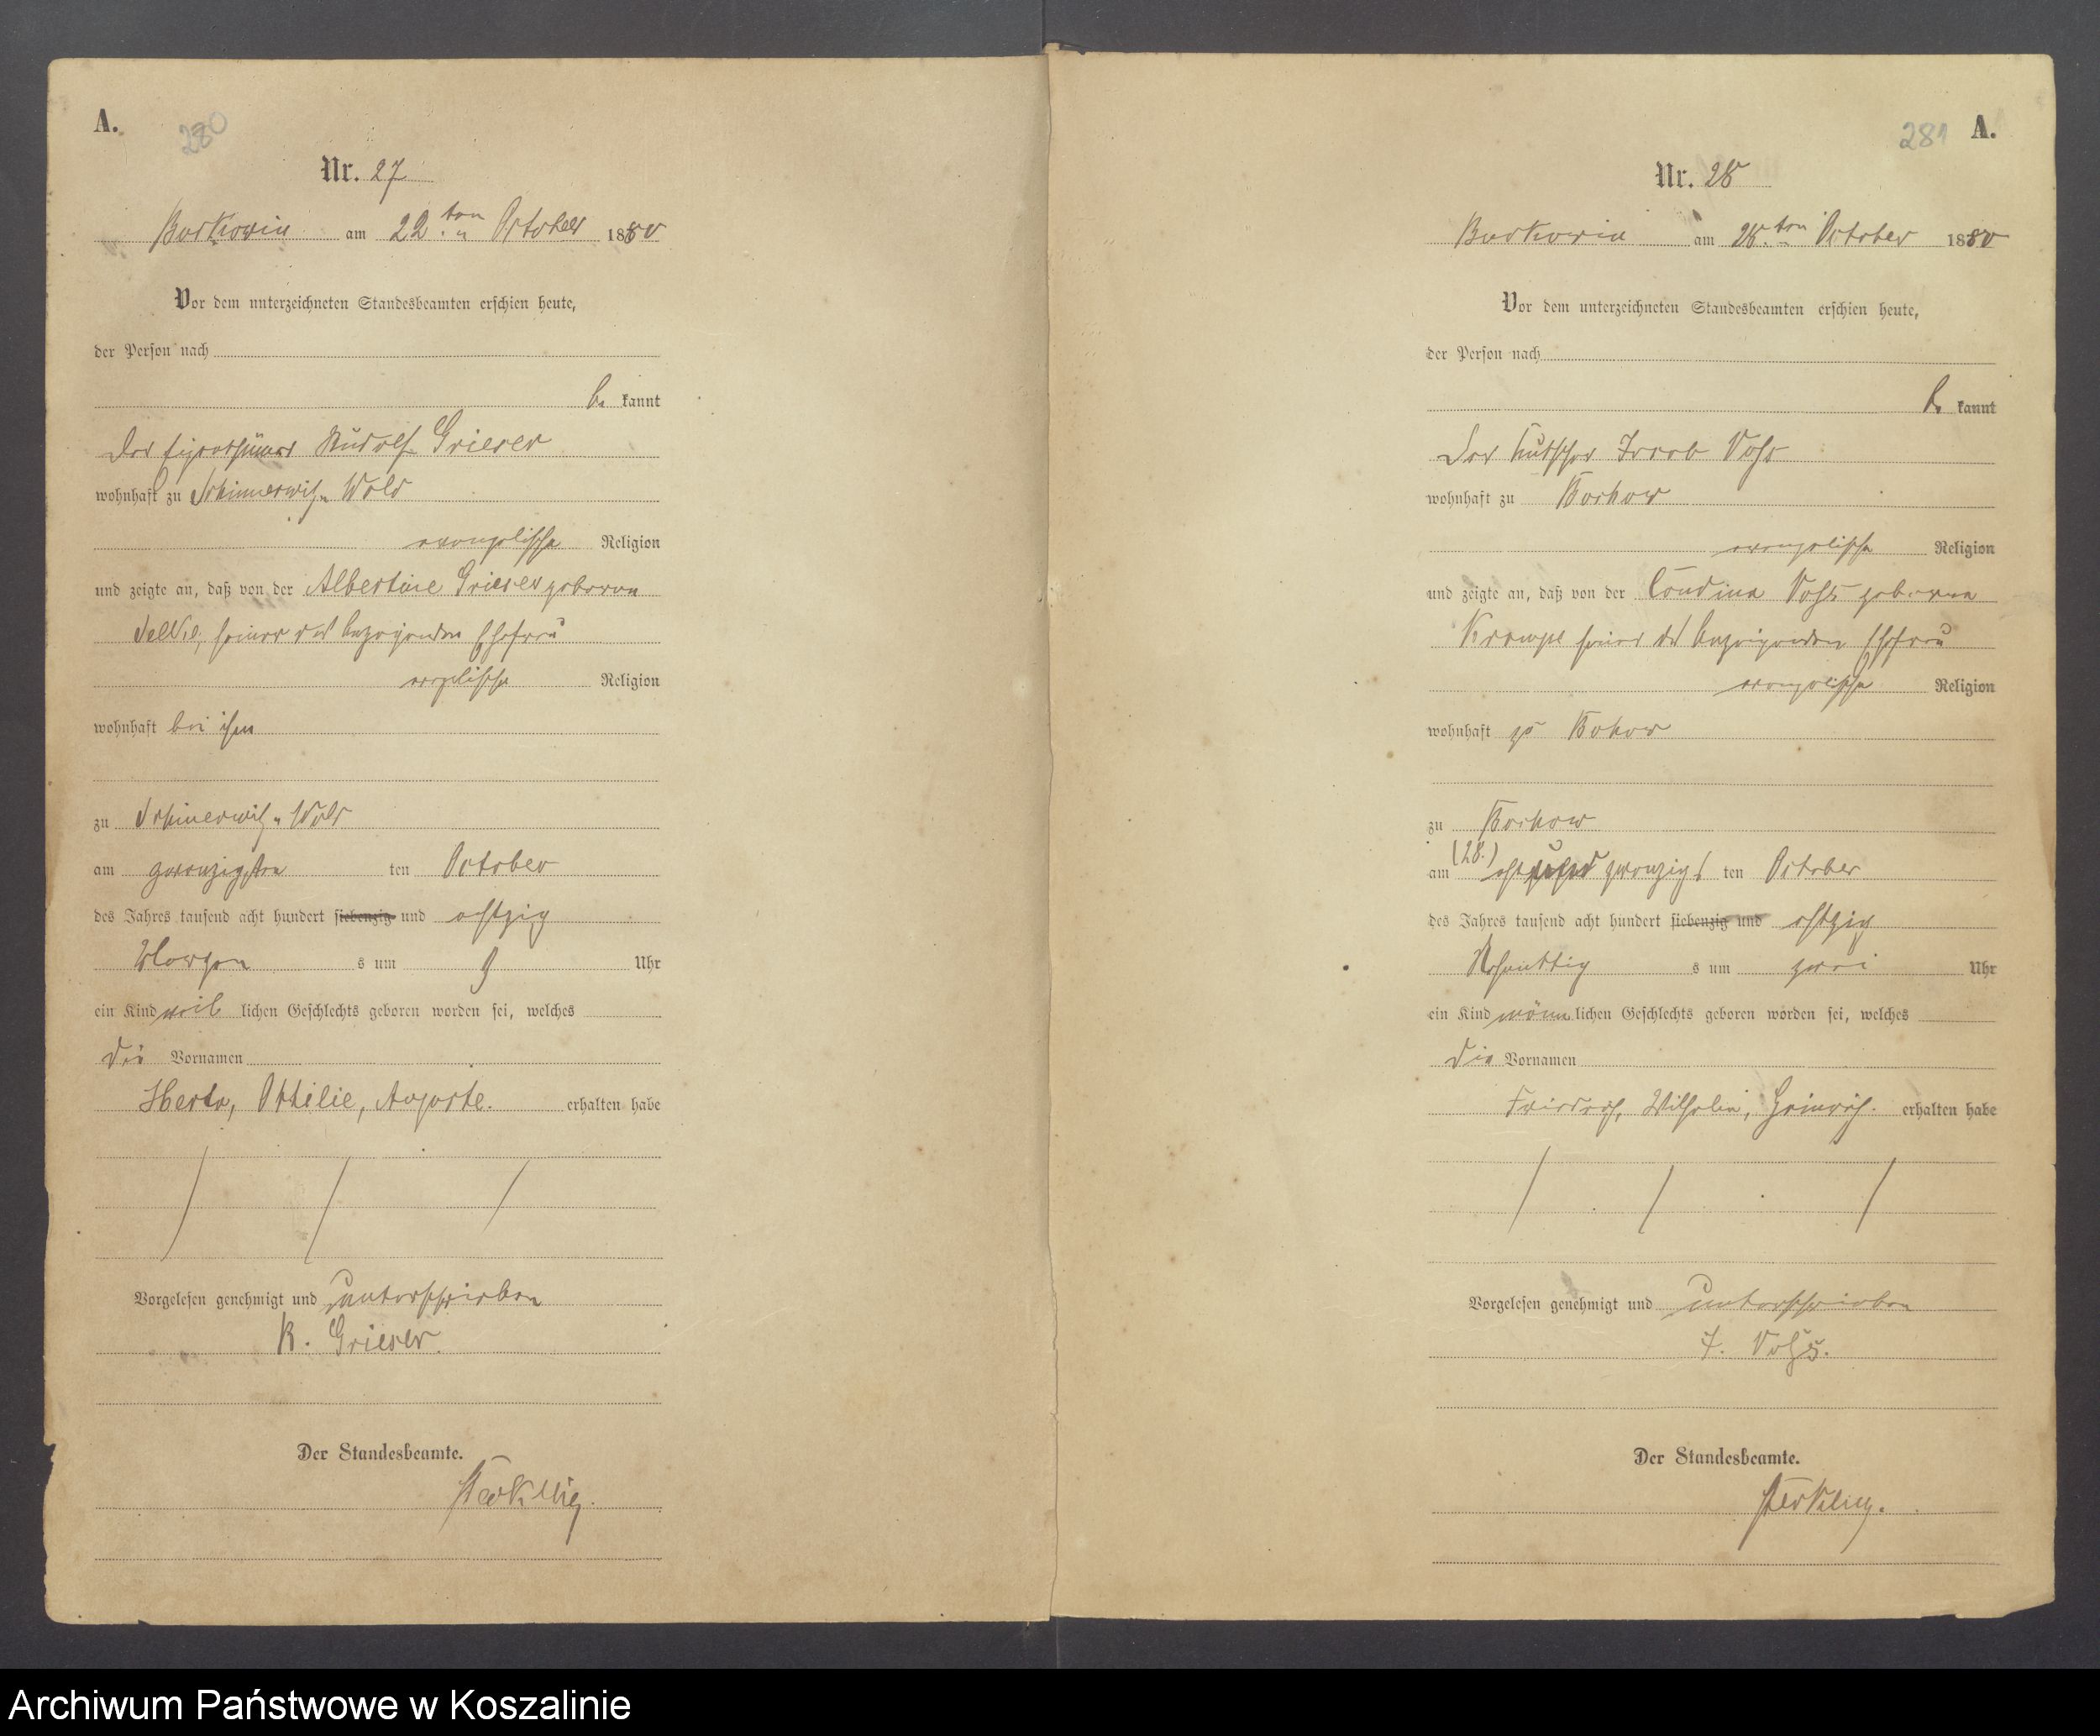 A.
280
Nr. 27
am 22.ten October 1880
Vor dem unterzeichneten Standesbeamten erschien heute,
der Person nach
be kannt
Der Eigenthümer Rudolf Grieser
wohnhaft zu Wald
evangelische Religion
und zeigte an, daß von der Albertine Grieser geborene
seiner des Anzeigenden Ehefrau
Religion
wohnhaft bei ihm
zu Wald
am zwanzigsten ten October
des Jahres tausend acht hundert siebenzig und achtzig
Morgen s um 9 Uhr
ein Kind weib lichen Geschlechts geboren worden sei, welches
die Vornamen
Herta, Ottilie, Auguste. erhalten habe
Vorgelesen genehmigt und unterschrieben
R. Grieser.
Der Standesbeamte.
A.
281
Nr. 28
am 28.ten October 1880
Vor dem unterzeichneten Standesbeamten erschien heute,
der Person nach
be kannt
Der Kutscher Jacob Vohs
wohnhaft zu Borkow
evangelische Religion
und zeigte an, daß von der Vohs geborene
Krampe seiner des Anzeigenden Ehefrau
evangelische Religion
wohnhaft zu
zu Borkow
am (28.) acht und zwanzigs ten October
des Jahres tausend acht hundert siebenzig und achtzig
s um zwei Uhr
ein Kind männ lichen Geschlechts geboren worden sei, welches
die Vornamen
Friedrich, Wilhelm, Heinrich. erhalten habe
Vorgelesen genehmigt und unterschrieben
J. Vohs.
Der Standesbeamte.
Archiwum Państwowe w Koszalinie